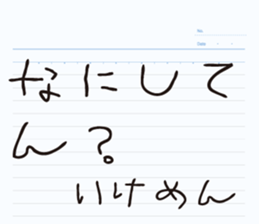 No.
Date
なにして
ん?
いけめん